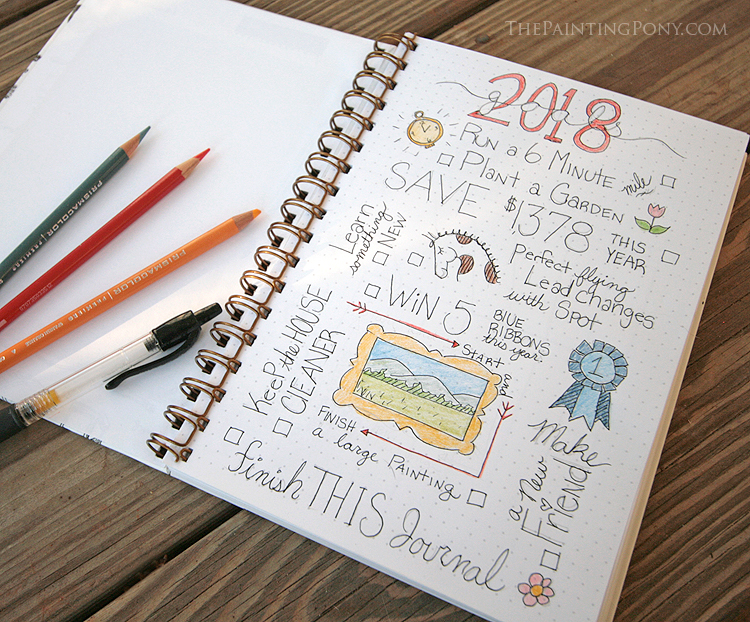 THEPAINTINGPONY.COM
2018
goals
RUN a 6 MINUTE mile
PLANT a GARDEN
SAVE $1378 THIS YEAR
Learn something NEW
Perfect flying Lead Changes with Spot
WiN 5 BLUE RIBBONS this year.
START and
FINISH
a large PAINTING
KEEP the HOUSE
CLEANER
1
Make
a New
Friend
Finish THIS Journal
PRISMACOLOR PREMIER
PRISMACOLOR PREMIER
PRISMACOLOR PREMIER